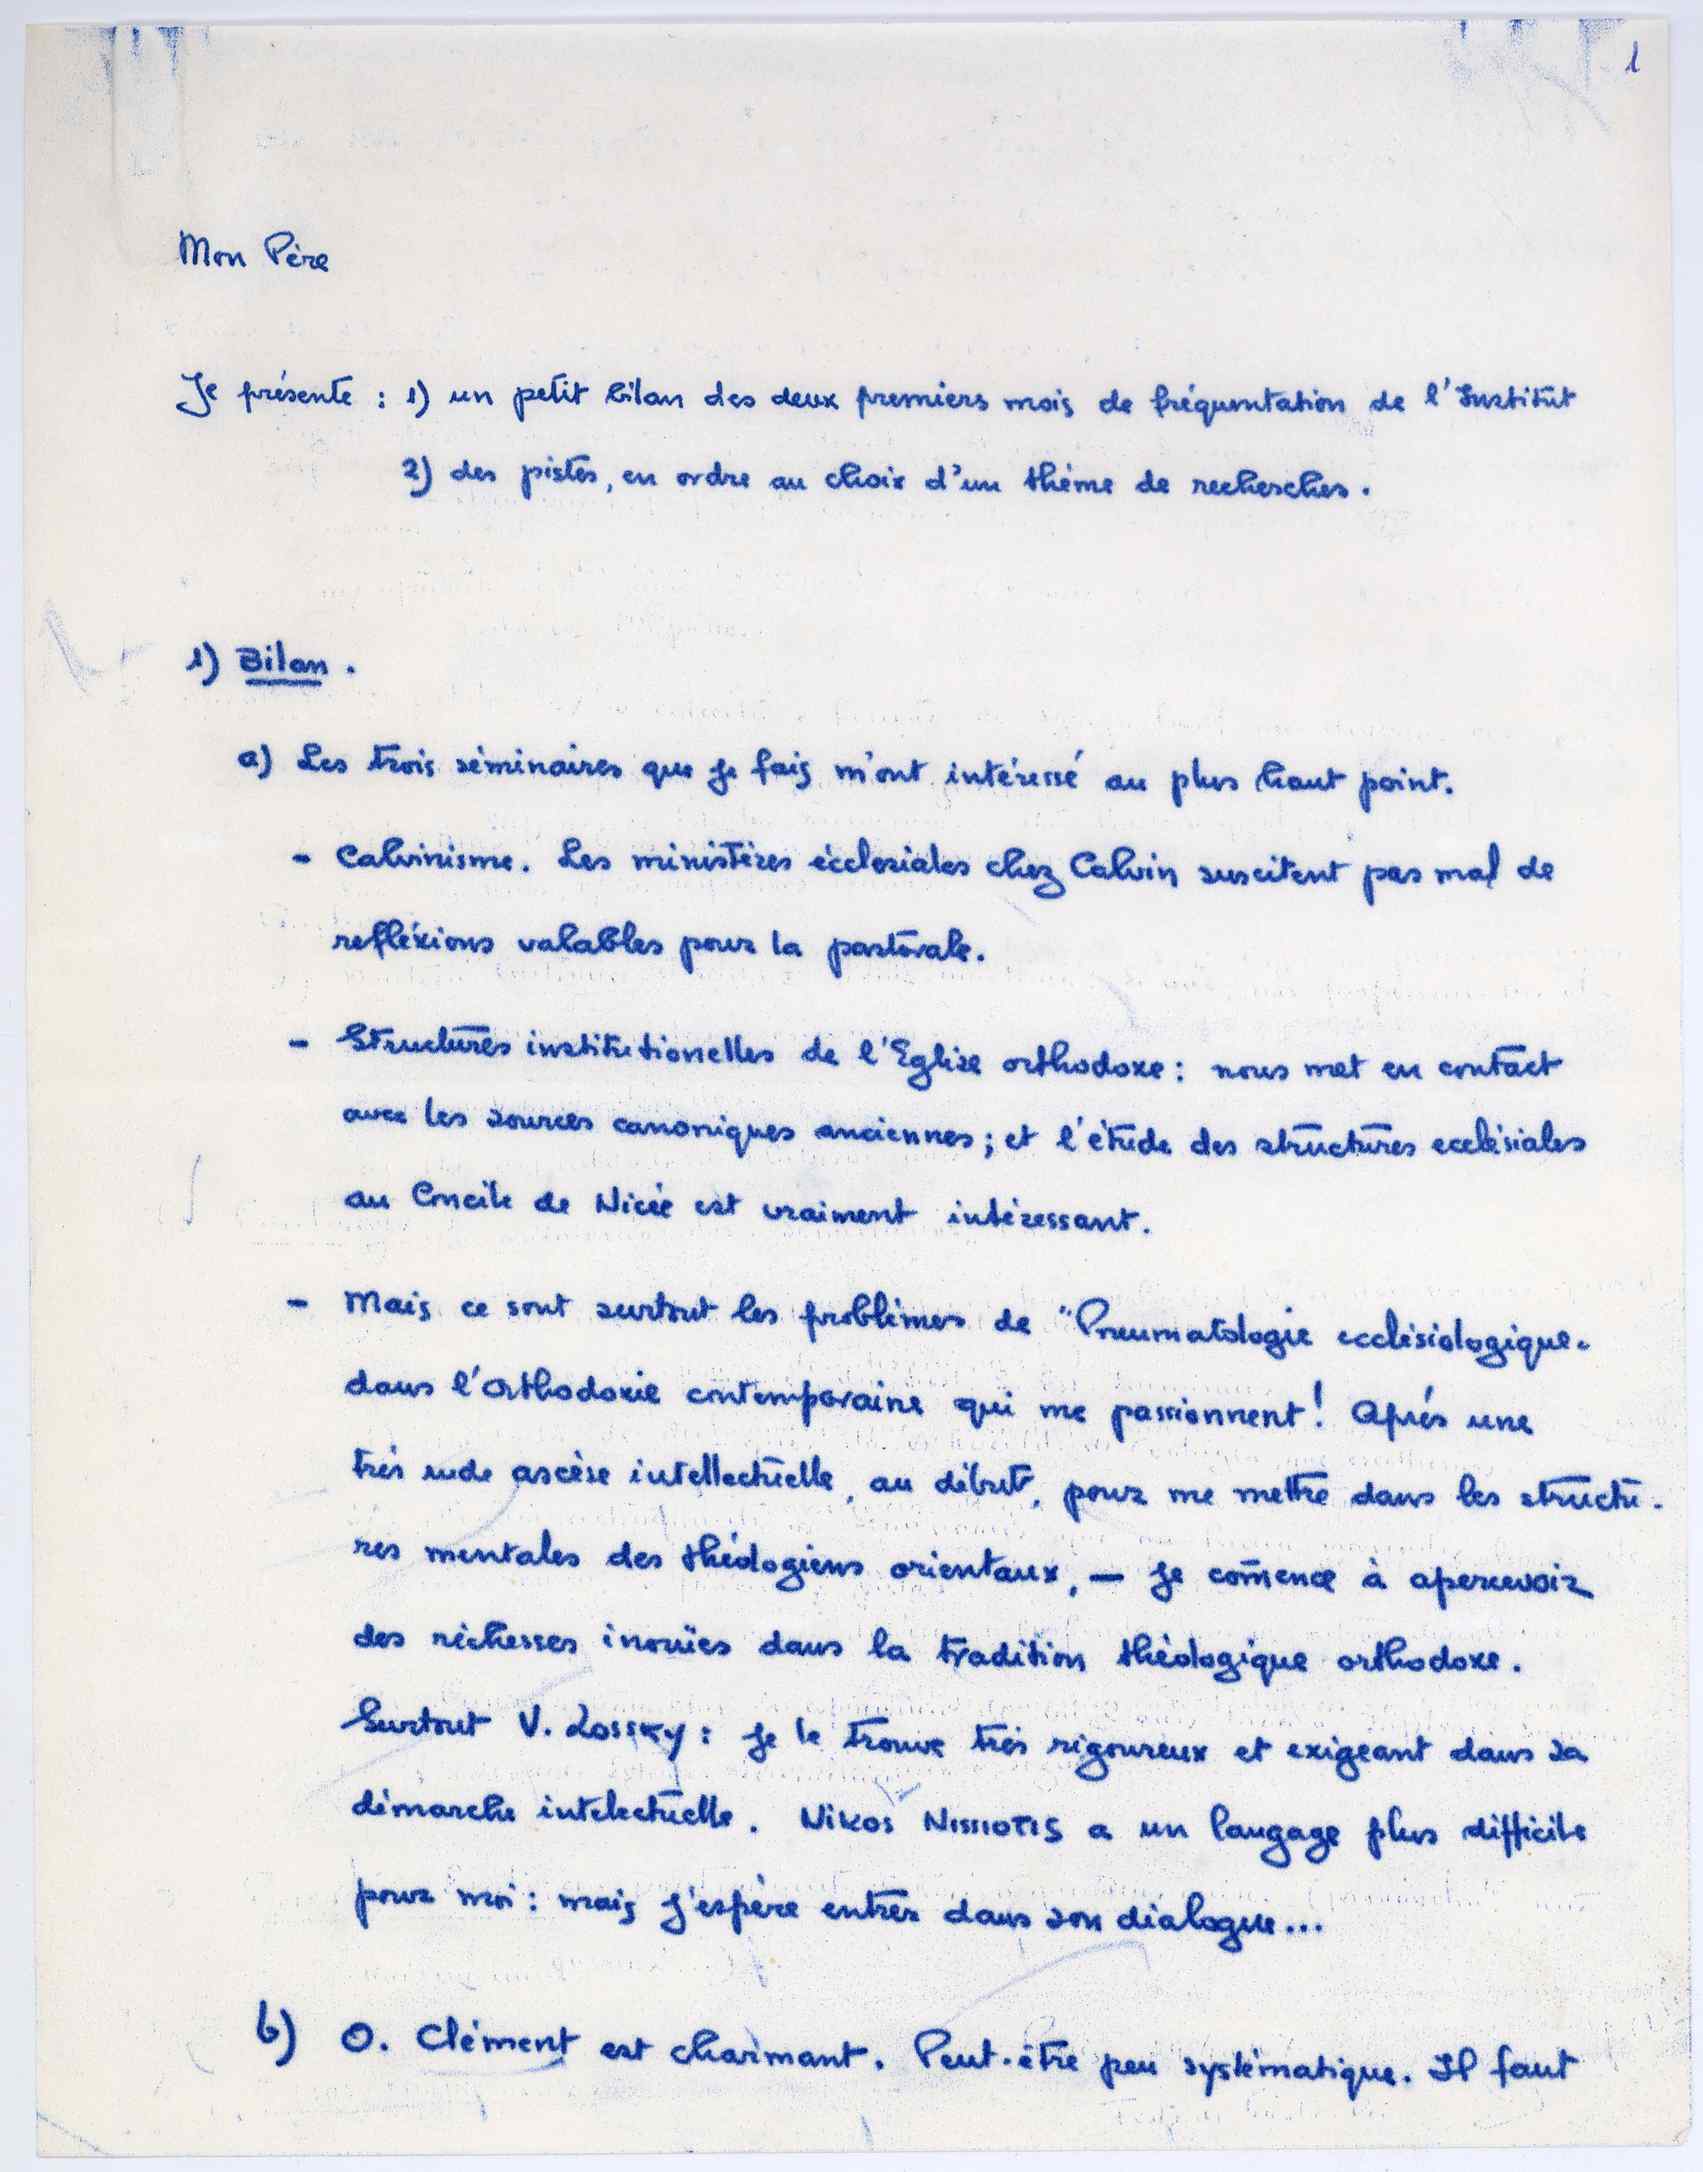 1
Mon Père
Je présente : 1) un petit bilan des deux premiers mois de fréquentation de l'Institut
2) des pistes, en ordre au choix d'un thème de recherches.
1) Bilan.
a) Les trois séminaires que je fais m'ont intéressé au plus haut point.
- Calvinisme. Les ministères écclesiales chez Calvin suscitent pas mal de
refléxions valables pour la pastorale.
- Structures institutionelles de l'Eglise orthodoxe : nous met en contact
avec les sources canoniques anciennes ; et l'étude des structures ecclésiales
au Concile de Nicée est vraiment intéressant.
- Mais ce sont surtout les problèmes de "Pneumatologie ecclésiologique"
dans l'Orthodoxie contemporaine qui me passionnent ! Après une
très rude ascèse intellectuelle, au début, pour me mettre dans les structu-
res mentales des théologiens orientaux, — je com̄ence à apercevoir
des richesses inouïes dans la tradition théologique orthodoxe.
Surtout V. Lossky : je le trouve très rigoureux et exigeant dans sa
démarche intelectuelle. Nikos Nissiotis a un langage plus difficile
pour moi : mais j'espère entrer dans son dialogue...
b) O. Clément est charmant. Peut-être peu systématique. Il faut